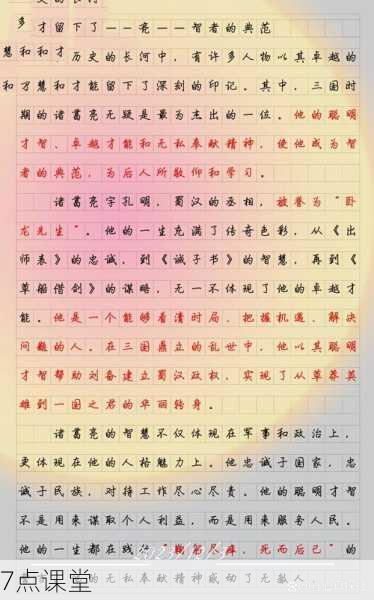 多才留下了——亮——智者的典范
慧和和才历史的长河中，有许多人物以其卓越的
和才慧和才能留下了深刻的印记。其中，三国时
期的诸葛亮无疑是最为杰出的一位。他的聪明
才智、卓越才能和无私奉献精神，使他成为智
者的典范，为后人所敬仰和学习。
诸葛亮字孔明，蜀汉的丞相，被誉为“卧
龙先生”。他的一生充满了传奇色彩，从《出
师表》的忠诚，到《诫子书》的智慧，再到《
草船借剑》的谋略，无一不体现了他的卓越才
能。他是一个能够看清时局、把握机遇、解决
问题的人。在三国鼎立的乱世中，他以其聪明
才智帮助刘备建立蜀汉政权，实现了从草莽英
雄到一国之君的华丽转身。
诸葛亮的智慧不仅体现在军事和政治上，
更体现在他的人格魅力上。他忠诚于国家，忠
诚于民族，对待工作尽心尽责。他的聪明才智
不是用来谋取个人利益，而是用来服务人民。
他的一生都在践行“鞠躬尽瘁，死而后已”的
的无私奉献精神感动了无数人
7点课堂